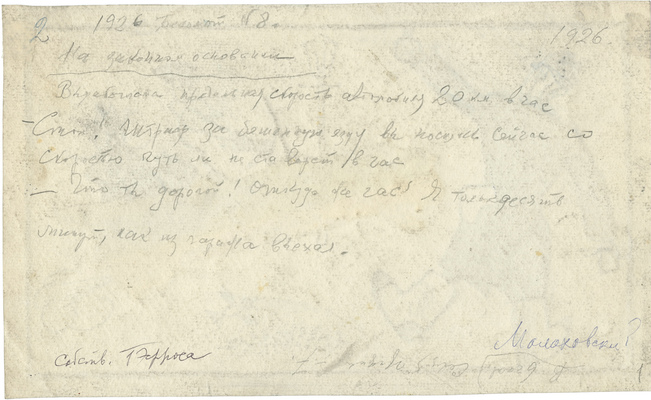 2 1926 Бегемот N 8.
1926.
На законном основании
предельная скорость автомобиля 20 км. в час
– Стой! Штраф за бешеную езду вы носитесь сейчас со
скоростью чуть ли не ста верст в час
– Что ты дорогой! Откуда же час! Я только десять
минут, как из гаража выехал.
Малаховский?
собств.